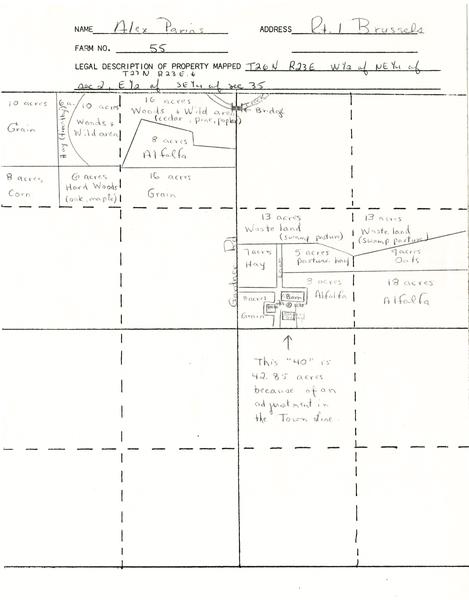 NAME Alex Parins ADDRESS Rt. 1 Brussels
FARM NO. 55
LEGAL DESCRIPTION OF PROPERTY MAPPED T26N R23E W½ of NE¼ of
T27N R23E.
sec 2, E½ of SE¼ of sec 35
10 acres
Grain
Hay (timothy)
10 acres
Woods +
Wild area
16 acres
Woods + Wild area
(cedar, pine, poplar)
Bridge
8 acres
Alfalfa
8 acres
Corn
6 acres
Hard Woods
(oak, maple)
16 acres
Grain
13 acres
Waste land
(swamp pasture)
13 acres
Waste land
(swamp pasture)
Gardner Rd
7 acres
Hay
5 acres
Pasture, hay
9 acres
Oats
8 acres
Grain
Barn
8 acres
Alfalfa
18 acres
Alfalfa
This "40" is
42.85 acres
because of an
adjustment in
the Town line.